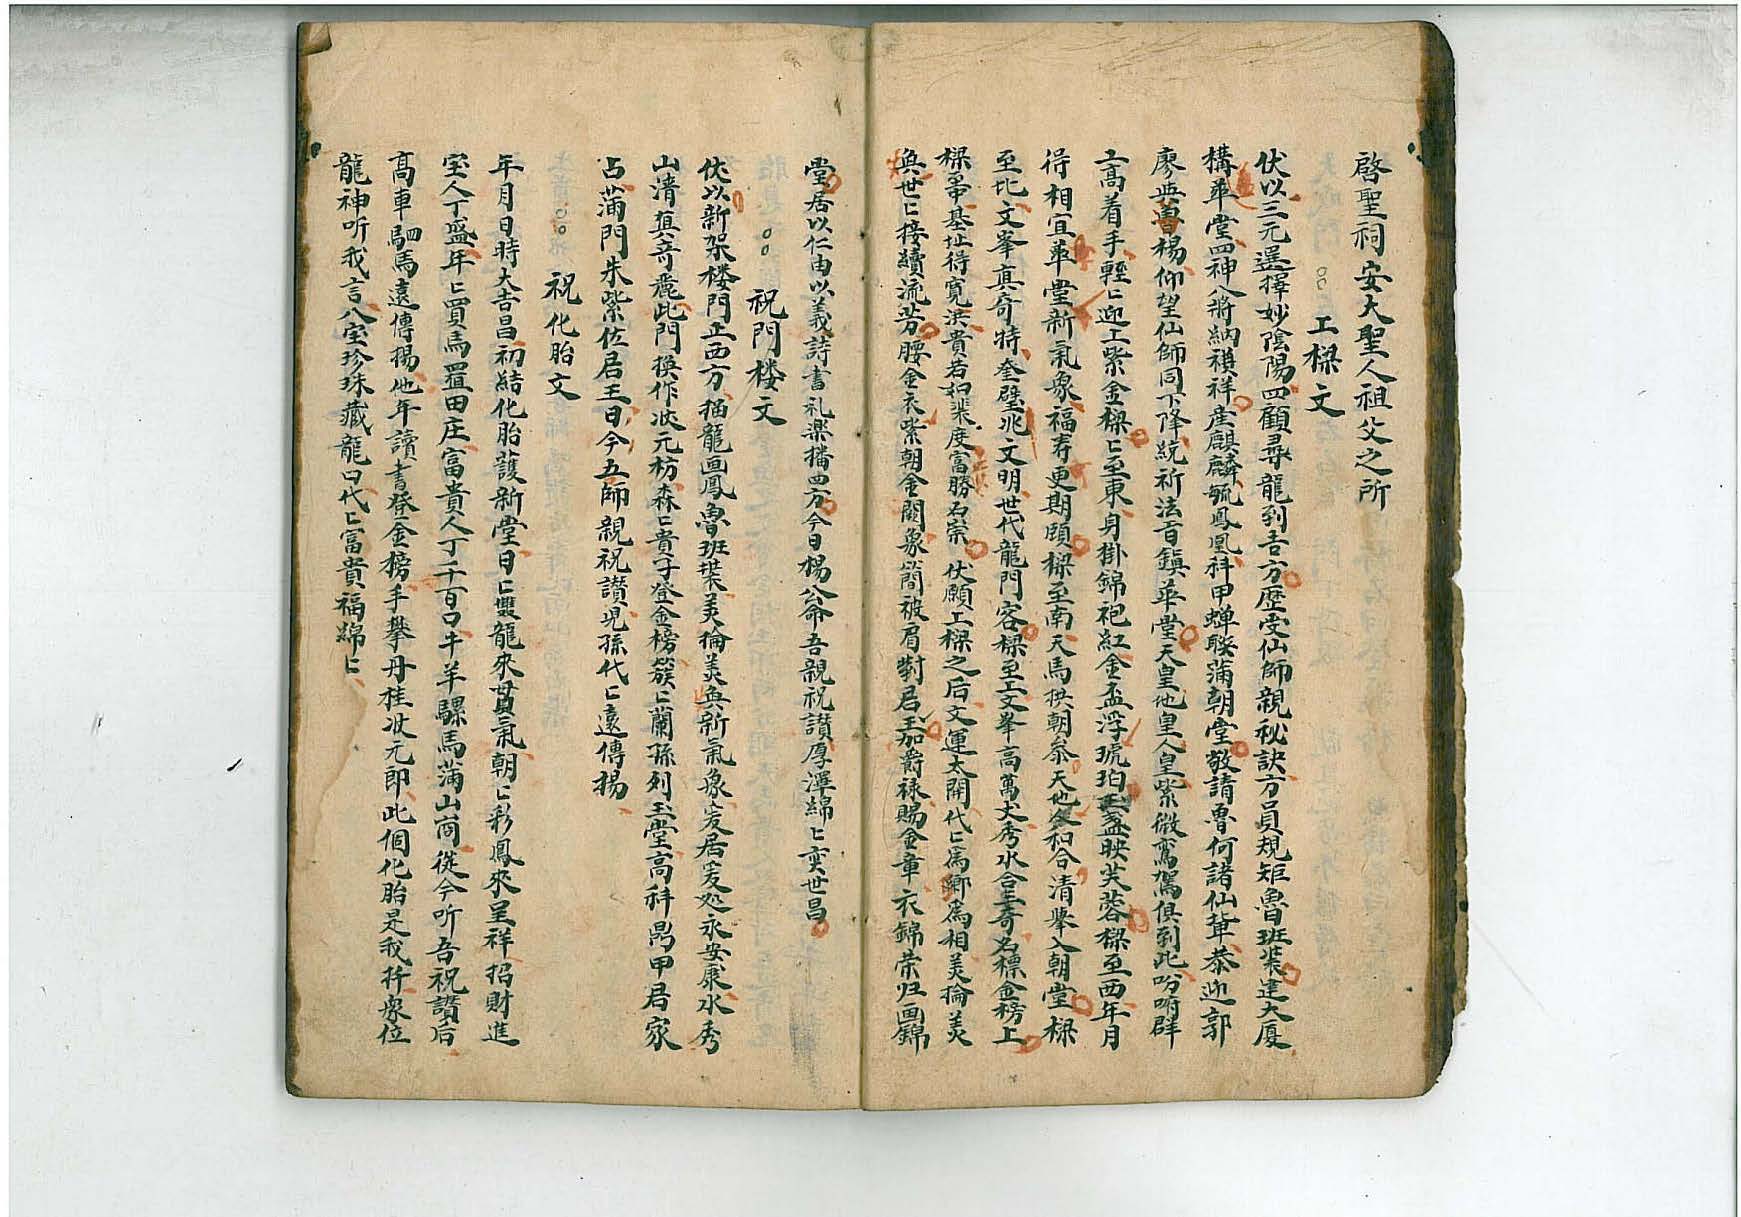 啓聖祠安大聖人祖父之所
上樑文
伏以三元選擇妙陰陽四顧尋龍到吉方歷受仙師親秘訣方員規矩魯班裝建大厦
構華堂四神八將納禎祥産麒麟毓鳳凰科甲蟬聯蒲朝堂敬請魯何諸仙軰恭迎郭
廖與曽楊仰望仙師同下降統祈法音鎮華堂天皇地皇人皇紫微鸞駕俱到此吩咐群
工高着手輕匕迎上紫金樑匕至東身掛錦袍紅金盃浮琥珀玉盞映芙蓉樑至西年月
得相宜華堂新氣象福寿更期頤樑至南天馬拱朝叅天地交和合清擧入朝堂樑
至北文峯真奇特奎璧兆文明世代龍門客樑至上文峯高萬丈秀水合至奇名標金榜上
樑帝基址得寬洪貴若如裴度富勝石崇伏願上樑之后文運太開代匕爲鄉爲相美掄美
奐世匕接續流芳腰金衣紫朝金闕象簡被眉對君王加爵禄賜金章衣錦荣归画錦
堂居以仁由以義詩書礼楽播四方今日楊公命吾親祝讃厚澤綿匕奕世昌
祝門楼文
伏以新架楼門正西方描龍画鳳魯班裝美掄美奐新氣象爰居爰処永安康水秀
山清真奇麗此門換作状元枋森匕貴子登金榜簇匕蘭孫列玉堂高科鼎甲居家
占蒲門朱紫佐君王日今五師親祝讃児孫代匕遠傳揚
祝化胎文
年月日時大吉昌初結化胎護新堂日匕雙龍來貫氣朝匕彩鳳來呈祥招財進
宝人丁盛年匕買馬置田庄富貴人丁千百口牛羊騾馬蒲山崗從今听吾祝讃后
高車駟馬遠傳揚他年讀書登金榜手攀丹桂状元郎此個化胎是我扦衆位
龍神听我言八宝珍珠藏龍口代匕富貴福綿匕